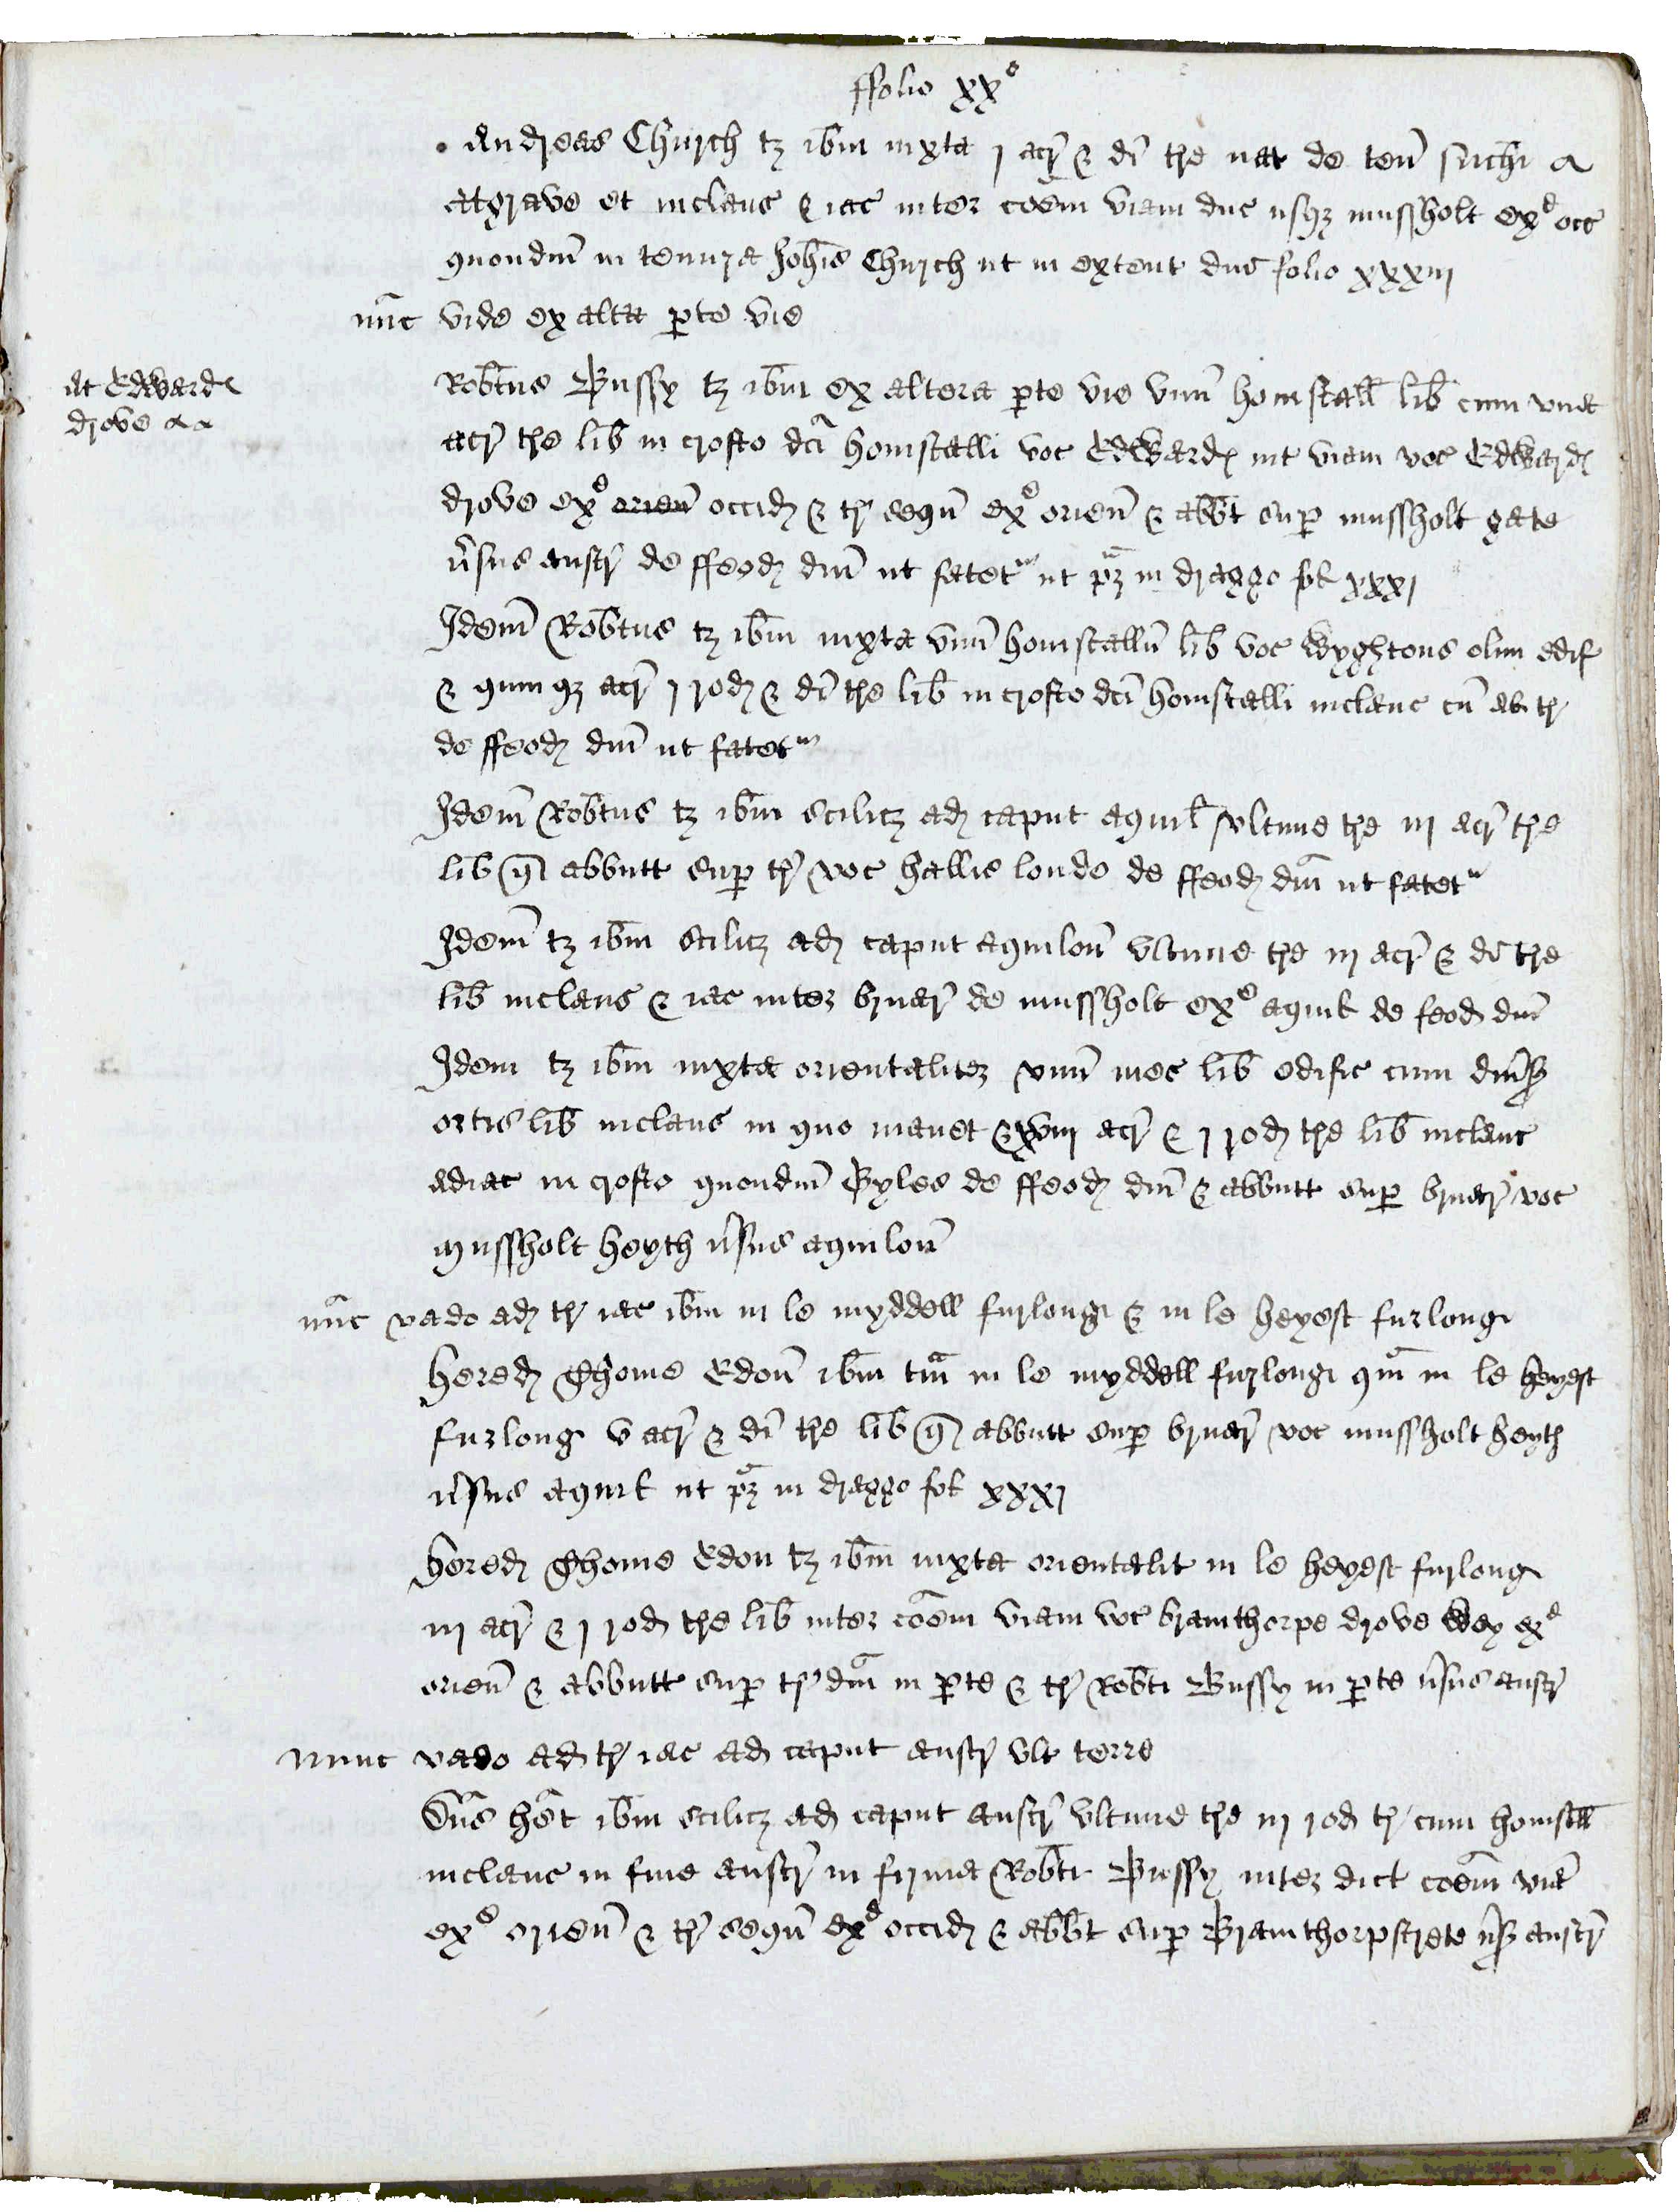 ffolio xx°
Andreas Church tz ibm iuxta j acr & di tre nat de ten suthi a
atgrave et inclaus & iac inter coem viam duc usqz mussholt ex occ
quondm in tenura Johis Church ut in extent dne folio xxxiij
nuc vide ex alta pte vie
At Edward
drove
Robtus Bussy tz ibm ex altera pte vie unu homstall lib cum una
acr tre lib in crofto dci homstalli voc Edward int viam voc Edward
drove ex orien occid & tr sequ ex orien & abbt sup mussholt gate
vsus austr de ffeod dni ut fatet ut pz in draggo fol xxxj
Idem Robtus tz ibm iuxta unu homstallu lib voc Wyghtons olim edif
& quinqz acr j rod & di tre lib in crofto dci homstalli inclaus cu tr
de ffeod dni ut fatet
Idem Robtus tz ibm scilicz ad caput aquil ultime tre iij acr tre
lib q abbutt sup tr voc hallis londe de ffeod dni ut fatet
Idem tz ibm scilicz ad caput aquilon ultime tre iij acr & di tre
lib inclaus & iac inter bruer de mussholt ex aquil de feod dni
Idem tz ibm iuxta orientaliter unu mes lib edific cum diuss
ortis lib inclaus in quo manet & xviij acr & j rod tre lib inclaus
adiac in crofto quondm Byles de ffeod dni & abbutt sup bruer voc
mussholt heyth vsus aquilon
nuc vado ad tr iac ibm in le myddell furlong & in le heyest furlong
Hered Thome Edon ibm tm in le myddell furlong qm in le heyest
furlong v acr & di tre lib q abbutt sup bruer voc mussholt heyth
vsus aquil ut pz in draggo fol xxxj
Hered Thome Edon tz ibm iuxta orientalit in le heyest furlong
iij acr & j rod tre lib inter coem viam voc bramthorpe drove wey ex
orien & abbutt sup tr dni in pte & tr Robti Bussy in pte vsus austr
nunc vado ad tr iac ad caput austr ult terre
Dns het ibm scilicz ad caput austr ultime tre iij rod tr cum homstall
inclaus in fine austr in firma Robti Bussy inter dict coem via
ex orien & tr sequ ex occid & abbt sup Bramthorpstrete vss austr